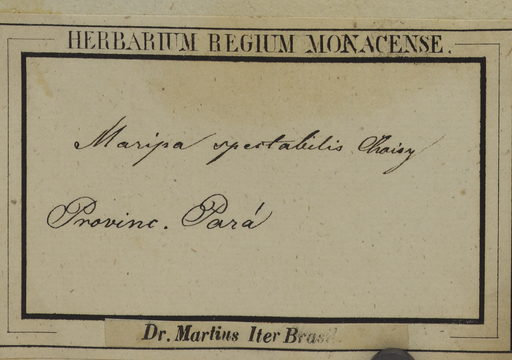 HERBARIUM REGIUM MONACENSE.
Maripa spectabilis Choisy
Provinc. Pará
Dr. Martius Iter Brasil